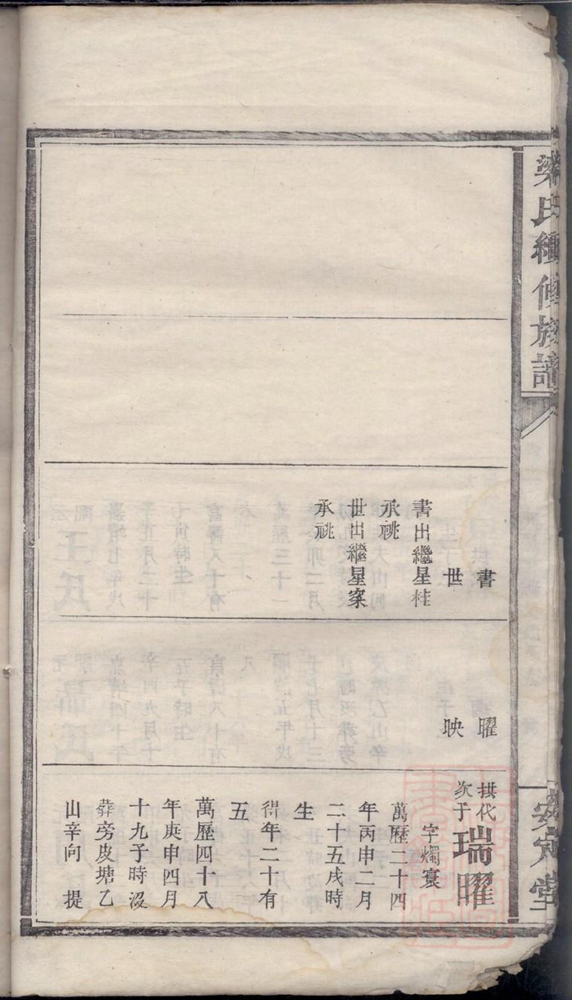 梁氏續修族譜
安定堂
書
世
書出繼星桂
承祧
世出繼星寀
承祧
曜
映
拱代
次子
瑞曜
字燭寰
萬歷二十四
年丙申二月
二十五戌時
生
得年二十有
五
萬歷四十八
年庚申四月
十九子時沒
葬旁皮塘乙
山辛向 提